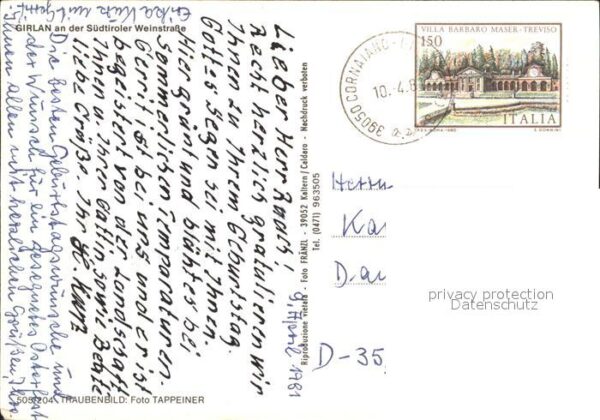 GIRLAN an der Südtiroler Weinstraße
Lieber Herr Rauch!
Recht herzlich gratulieren wir
Ihnen zu Ihrem Geburtstag.
Gottes Segen sei mit Ihnen.
Hier grünt und blüht es bei
sommerlichen Temperaturen.
Gerrit ist bei uns und er ist
begeistert von der Landschaft
Ihnen u. Ihrer Gattin sowie Beate
liebe Grüße, Ihr H. Kurz
Die besten Geburtstagswünsche und
der Wunsch für ein gesegnetes Osterfest
Ihnen allen mit herzlichen Grüßen, Ihre
Erika Kurz und Gerrit
9. April 1981
505/204 TRAUBENBILD: Foto TAPPEINER
Riproduzione vietata - Foto FRÄNZL - 39052 Kaltern / Caldaro - Nachdruck verboten
Tel. (0471) 963505
39050 CORNAIANO
10.-4.8
VILLA BARBARO MASER - TREVISO
150
ITALIA
Herrn
Ka
Da
D-35
privacy protection
Datenschutz